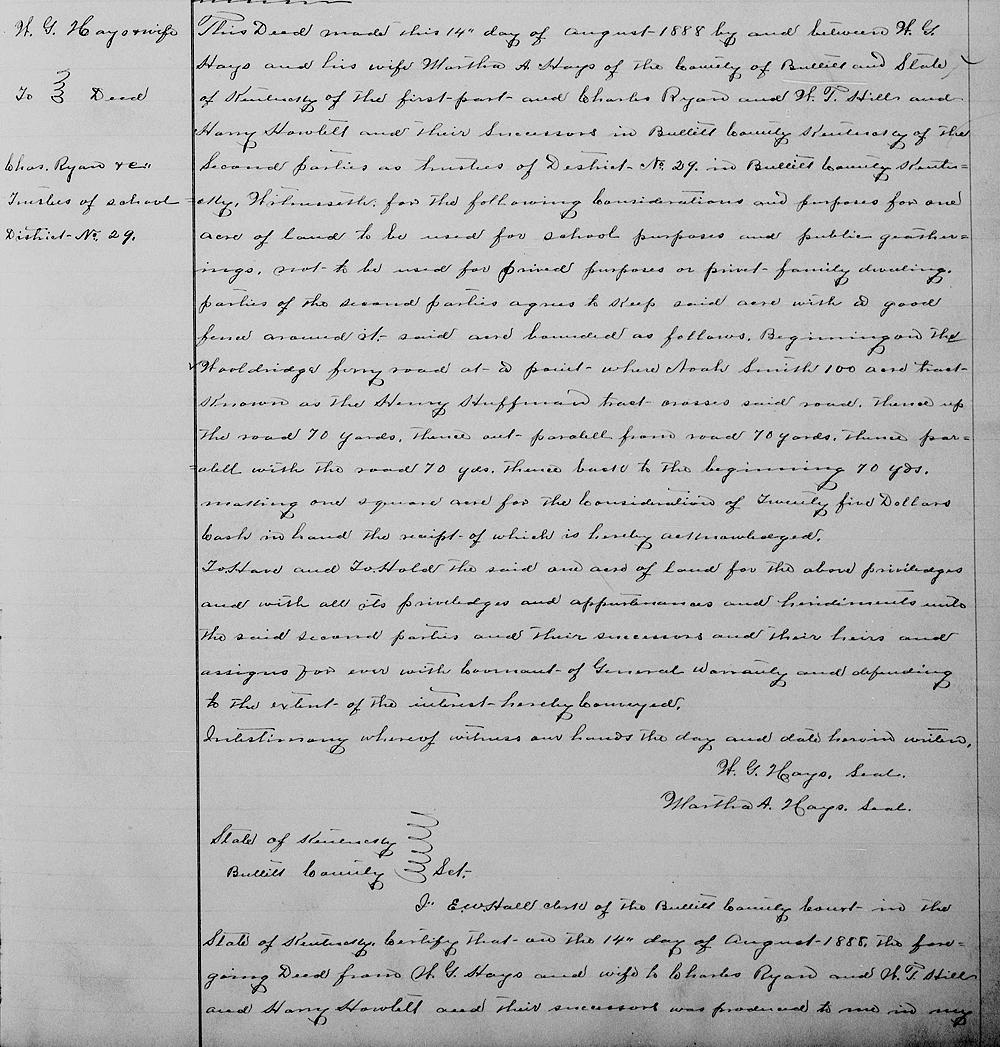 W. G. Hays & wife
To Deed
Chas. Ryan & C"
Trustees of school
District No. 29.
This Deed made this 14" day of August 1888 by and between W. G.
Hays and his wife Martha A Hays of the County of Bullitt and State
of Kentucky of the first part and Charles Ryan and W. T. Hills and
Harry Howlett and their Successors in Bullitt County Kentucky of the
Second parties as trusties of District No. 29. in Bullitt County Kentu=
=cky. Witnesseth. for the following Considerations and purposes for one
acre of land to be used for school purposes and public geather=
ings. not to be used for prived purposes or privet family dweling.
parties of the second parties agrees to Keep said acre with a good
fence around it said acre bounded as follows. Beginning on the
Wooldridge ferry road at a point where Noah Smith 100 acre tract
Known as the Henry Huffman tract crosses said road. thence up
the road 70 yards. thence out parabell from road 70 yards. thence par=
=abell with the road 70 yds. thence back to the beginning 70 yds.
making one square acre for the Consideration of Twenty five Dollars
Cash in hand the receipt of which is hereby acknowledged.
To Have and To Hold the said one acre of land for the above priviledges
and with all its priviledges and appurtenances and herediments unto
the said second parties and their successors and their heirs and
assigns for ever with Covenant of General Warranty and defending
to the extent of the interest hereby Conveyed.
In testimony whereof witness our hands the day and date herein writen.
W. G. Hays. Seal.
Martha A. Hays. Seal.
State of Kentucky
Bullitt County Sct.
I" E. W. Hall clerk of the Bullitt County Court in the
State of Kentucky. Certify that on the 14" day of August 1888. the fore=
going Deed from W. G. Hays and wife to Charles Ryan and W. T. Hills
and Harry Howlett and their successors was produced to me in my